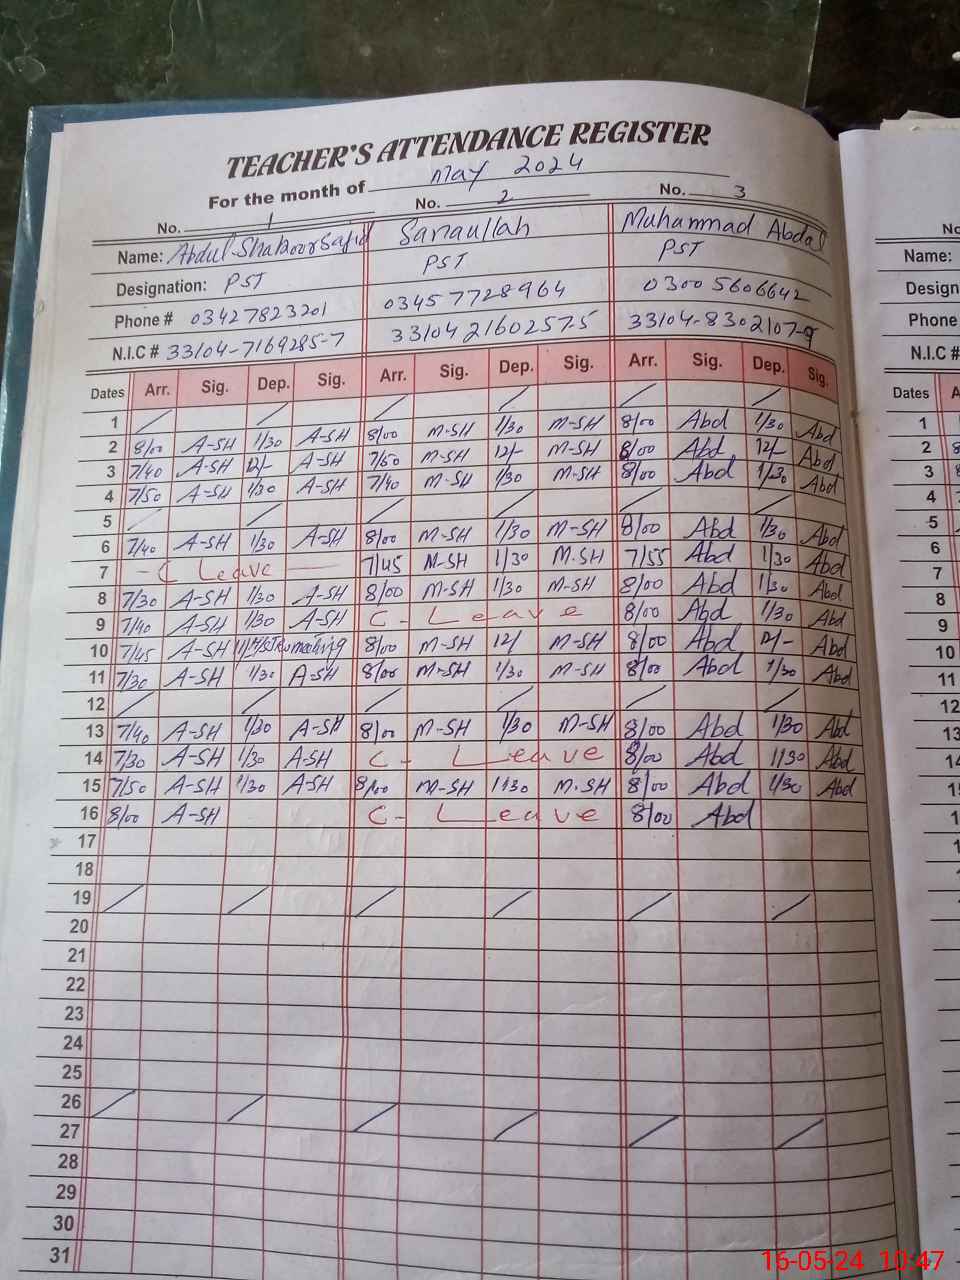 TEACHER'S ATTENDANCE REGISTER
For the month of May 2024
No. 1 No. 2 No. 3
Name: Abdul Shakoor Sajid Sanaullah Muhammad Abdal
Designation: PST PST PST
Phone # 03427823201 03457728964 03005606642
N.I.C # 33104-7169285-7 33104 2160257-5 33104-8302107-9
Dates Arr. Sig. Dep. Sig. Arr. Sig. Dep. Sig. Arr. Sig. Dep. Sig.
1 / / / / / /
2 8/00 A-SH 1/30 A-SH 8/00 M-SH 1/30 M-SH 8/00 Abd 1/30 Abd
3 7/40 A-SH 12/- A-SH 7/50 M-SH 12/- M-SH 8/00 Abd 12/- Abd
4 7/50 A-SH 1/30 A-SH 7/40 M-SH 1/30 M-SH 8/00 Abd 1/30 Abd
5 / / / / / /
6 7/40 A-SH 1/30 A-SH 8/00 M-SH 1/30 M-SH 8/00 Abd 1/30 Abd
7 - C Leave - 7/45 M-SH 1/30 M.SH 7/55 Abd 1/30 Abd
8 7/30 A-SH 1/30 A-SH 8/00 M-SH 1/30 M-SH 8/00 Abd 1/30 Abd
9 7/40 A-SH 1/30 A-SH C- Leave 8/00 Abd 1/30 Abd
10 7/45 A-SH 8/00 M-SH 12/ M-SH 8/00 Abd 12/- Abd
11 7/30 A-SH 1/30 A-SH 8/00 M-SH 1/30 M-SH 8/00 Abd 1/30 Abd
12 / / / / / /
13 7/40 A-SH 1/30 A-SH 8/00 M-SH 1/30 M-SH 8/00 Abd 1/30 Abd
14 7/30 A-SH 1/30 A-SH C- Leave 8/00 Abd 1/30 Abd
15 7/50 A-SH 1/30 A-SH 8/00 M-SH 1/30 M.SH 8/00 Abd 1/30 Abd
16 8/00 A-SH C- Leave 8/00 Abd
17
18
19 / / / / / /
20
21
22
23
24
25
26 / / / / / /
27
28
29
30
31
Name:
Design
Phone
N.I.C #
Dates
1
2
3
4
5
6
7
8
9
10
11
12
13
14
16-05-24 10:47